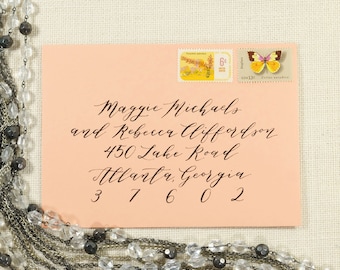 Maggie Michaels
and Rebecca Cliffordson
450 Lake Road
Atlanta, Georgia
3 7 6 0 2